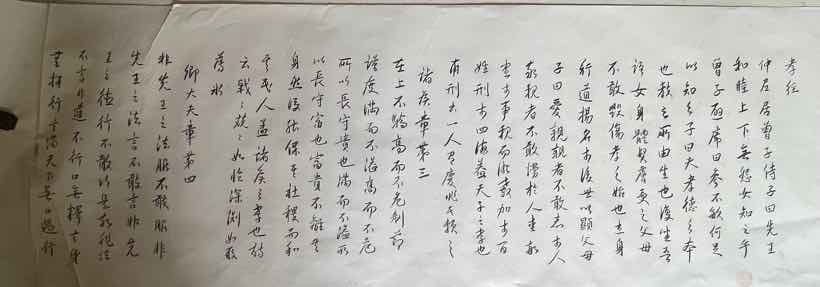 孝經
仲尼居曾子侍子曰先王
和睦上下無怨女知之乎
曾子辟席曰參不敏何足
以知之子曰夫孝德之本
也教之所由生也復坐吾
語女身體髮膚受之父母
不敢毀傷孝之始也立身
行道揚名於後世以顯父母
子曰愛親親者不敢惡於人
敬親者不敢慢於人愛敬
盡於事親而德教加於百
姓刑於四海蓋天子之孝也
甫刑云一人有慶兆民賴之
諸侯章第三
在上不驕高而不危制節
謹度滿而不溢高而不危
所以長守貴也滿而不溢所
以長守富也富貴不離其
身然後能保其社稷而和
其民人蓋諸侯之孝也詩
云戰戰兢兢如臨深淵如履
薄冰
卿大夫章第四
非先王之法服不敢服非
先王之法言不敢言非先
王之德行不敢行是故非法
不言非道不行口無擇言身
無擇行言滿天下無口過行